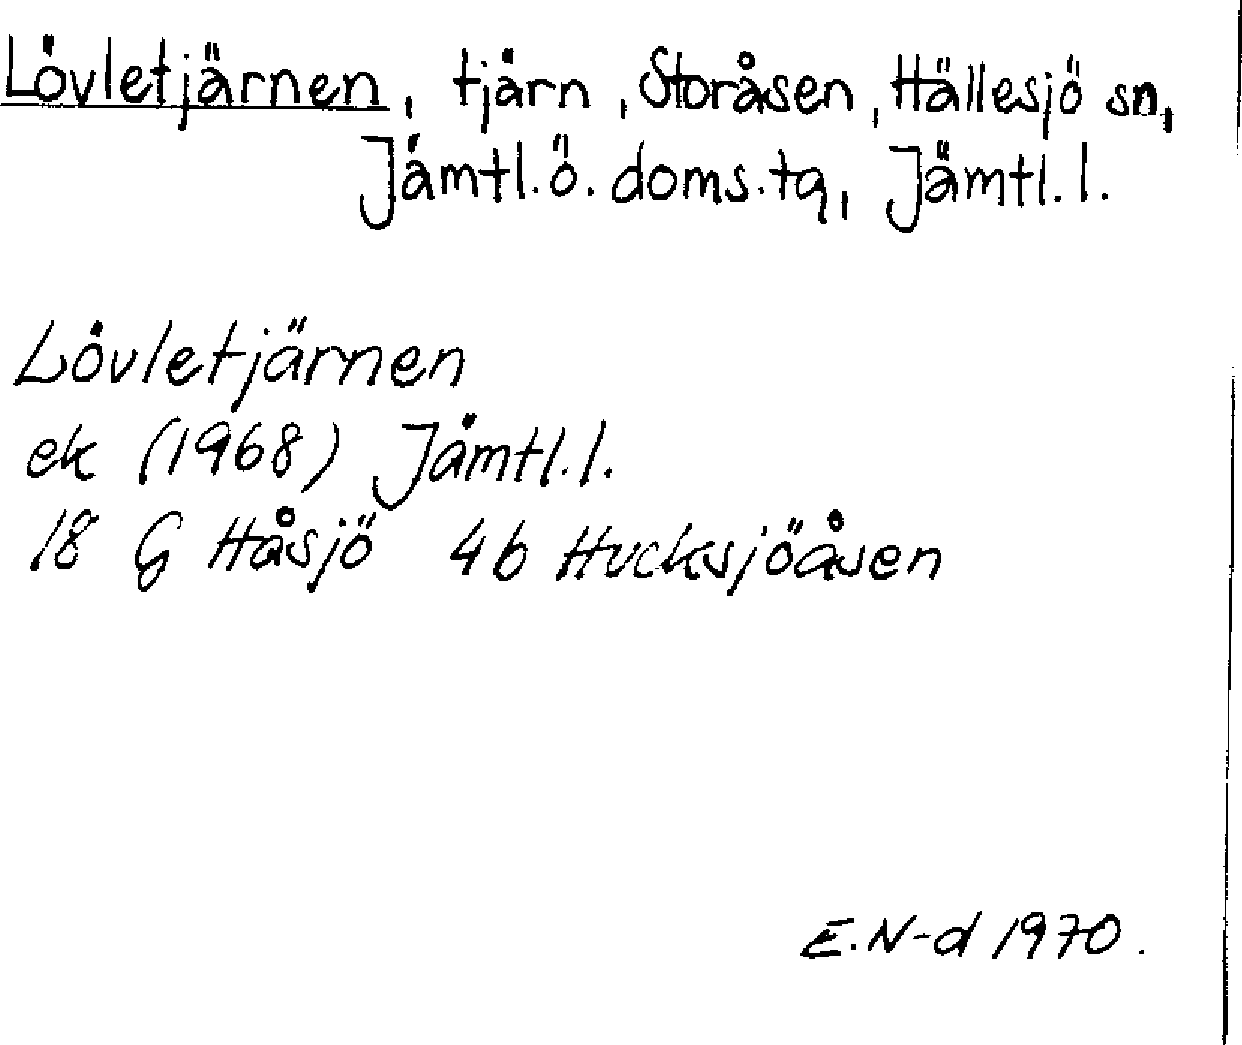 Lövletjärnen, tjärn, Storåsen, Hällesjö sn,
Jämtl.ö.doms.tg, Jämtl.l.
Lövletjärnen
ek (1968) Jämtl.l.
18 G Håsjö 4b Hucksjöåsen
E.N-d 1970.